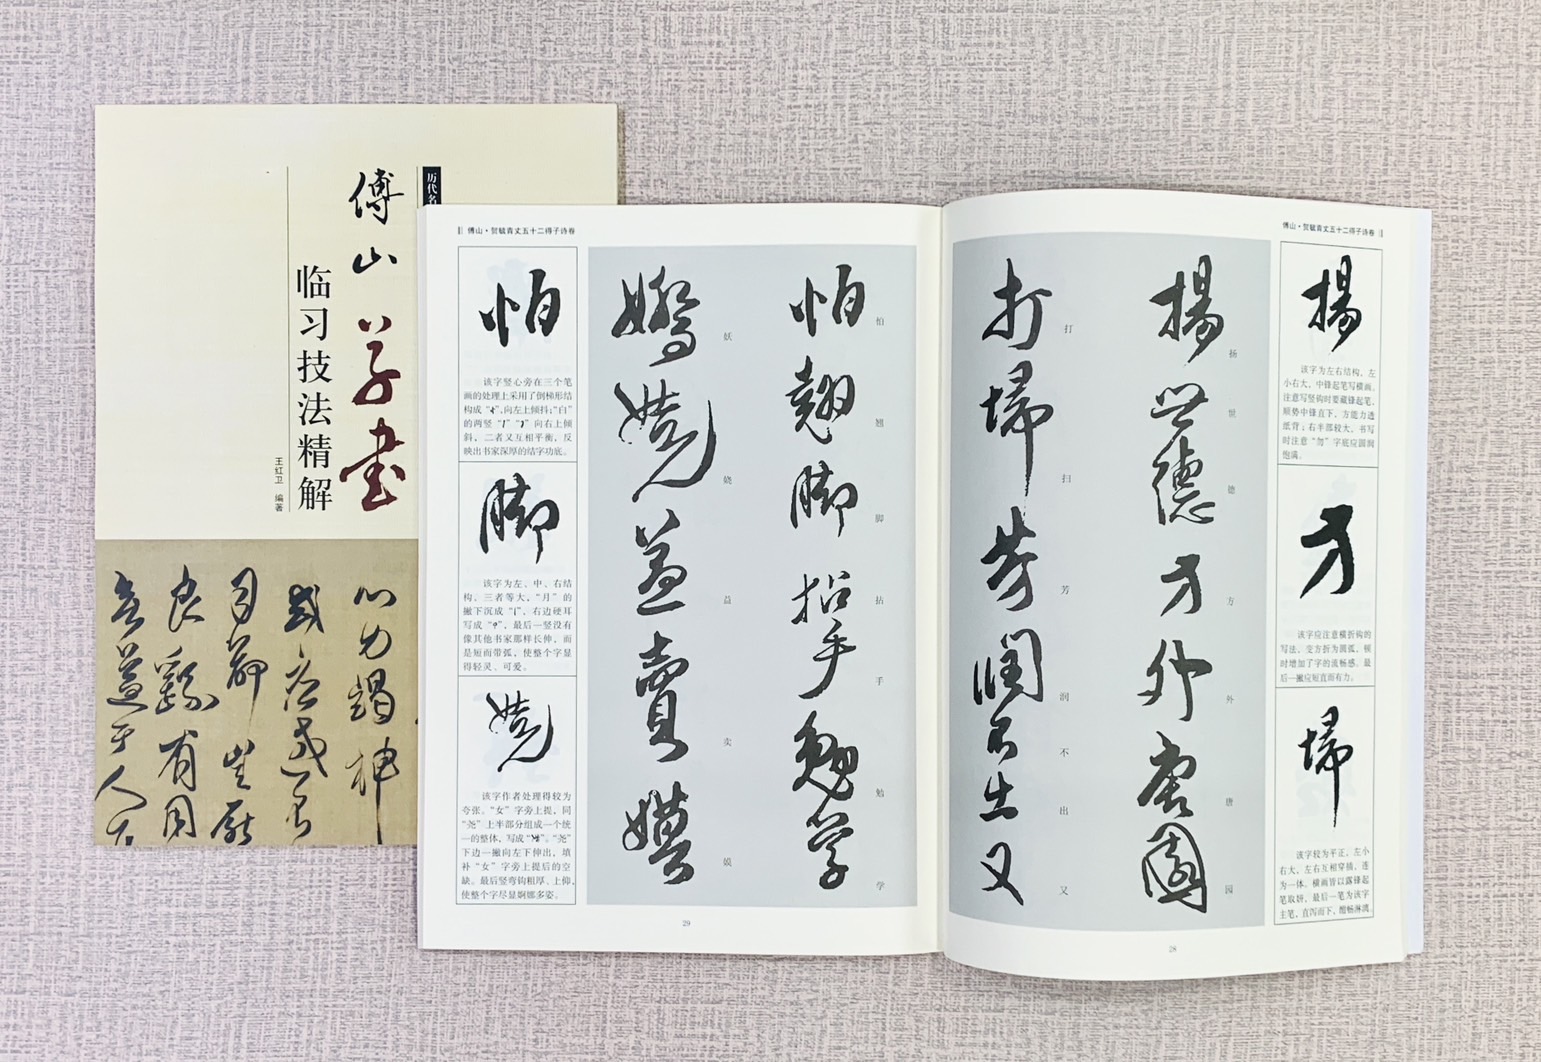 历代名
傅山草书
临习技法精解
王红卫 编著
心力竭神
良 有用
傅山·贺毓青丈五十二得子诗卷
揚
该字为左右结构，左
小右大，中锋起笔写横画。
注意写竖钩时要藏锋起笔，
顺势中锋直下，方能力透
纸背；右半部较大，书写
时注意“勿”字底应圆润
饱满。
方
该字应注意横折钩的
写法，变方折为圆弧，顿
时增加了字的流畅感。最
后一撇应短直而有力。
埽
该字较为平正，左小
右大，左右互相穿插，连
为一体。横画皆以露锋起
笔取妍，最后一笔为该字
主笔，直泻而下，酣畅淋漓。
揚世德方外唐園
扬世德方外唐园
打埽芳潤不出又
打扫芳润不出又
28
傅山·贺毓青丈五十二得子诗卷
怕翘脚拈手勉学
怕翘脚拈手勉学
嬌娆益賣嫫
妖娆益卖嫫
怕
该字竖心旁在三个笔
画的处理上采用了倒梯形结
构成“”，向左上倾抖；“白”
的两竖“”“”向右上倾
斜，二者又互相平衡，反
映出书家深厚的结字功底。
脚
该字为左、中、右结
构，三者等大，“月”的
撇下沉成“”，右边硬耳
写成“”，最后一竖没有
像其他书家那样长伸，而
是短而带弧，使整个字显
得轻灵、可爱。
娆
该字作者处理得较为
夸张。“女”字旁上提，同
“尧”上半部分组成一个统
一的整体，写成“”。“尧”
下边一撇向左下伸出，填
补“女”字旁上提后的空
缺。最后竖弯钩粗厚、上仰，
使整个字尽显婀娜多姿。
29